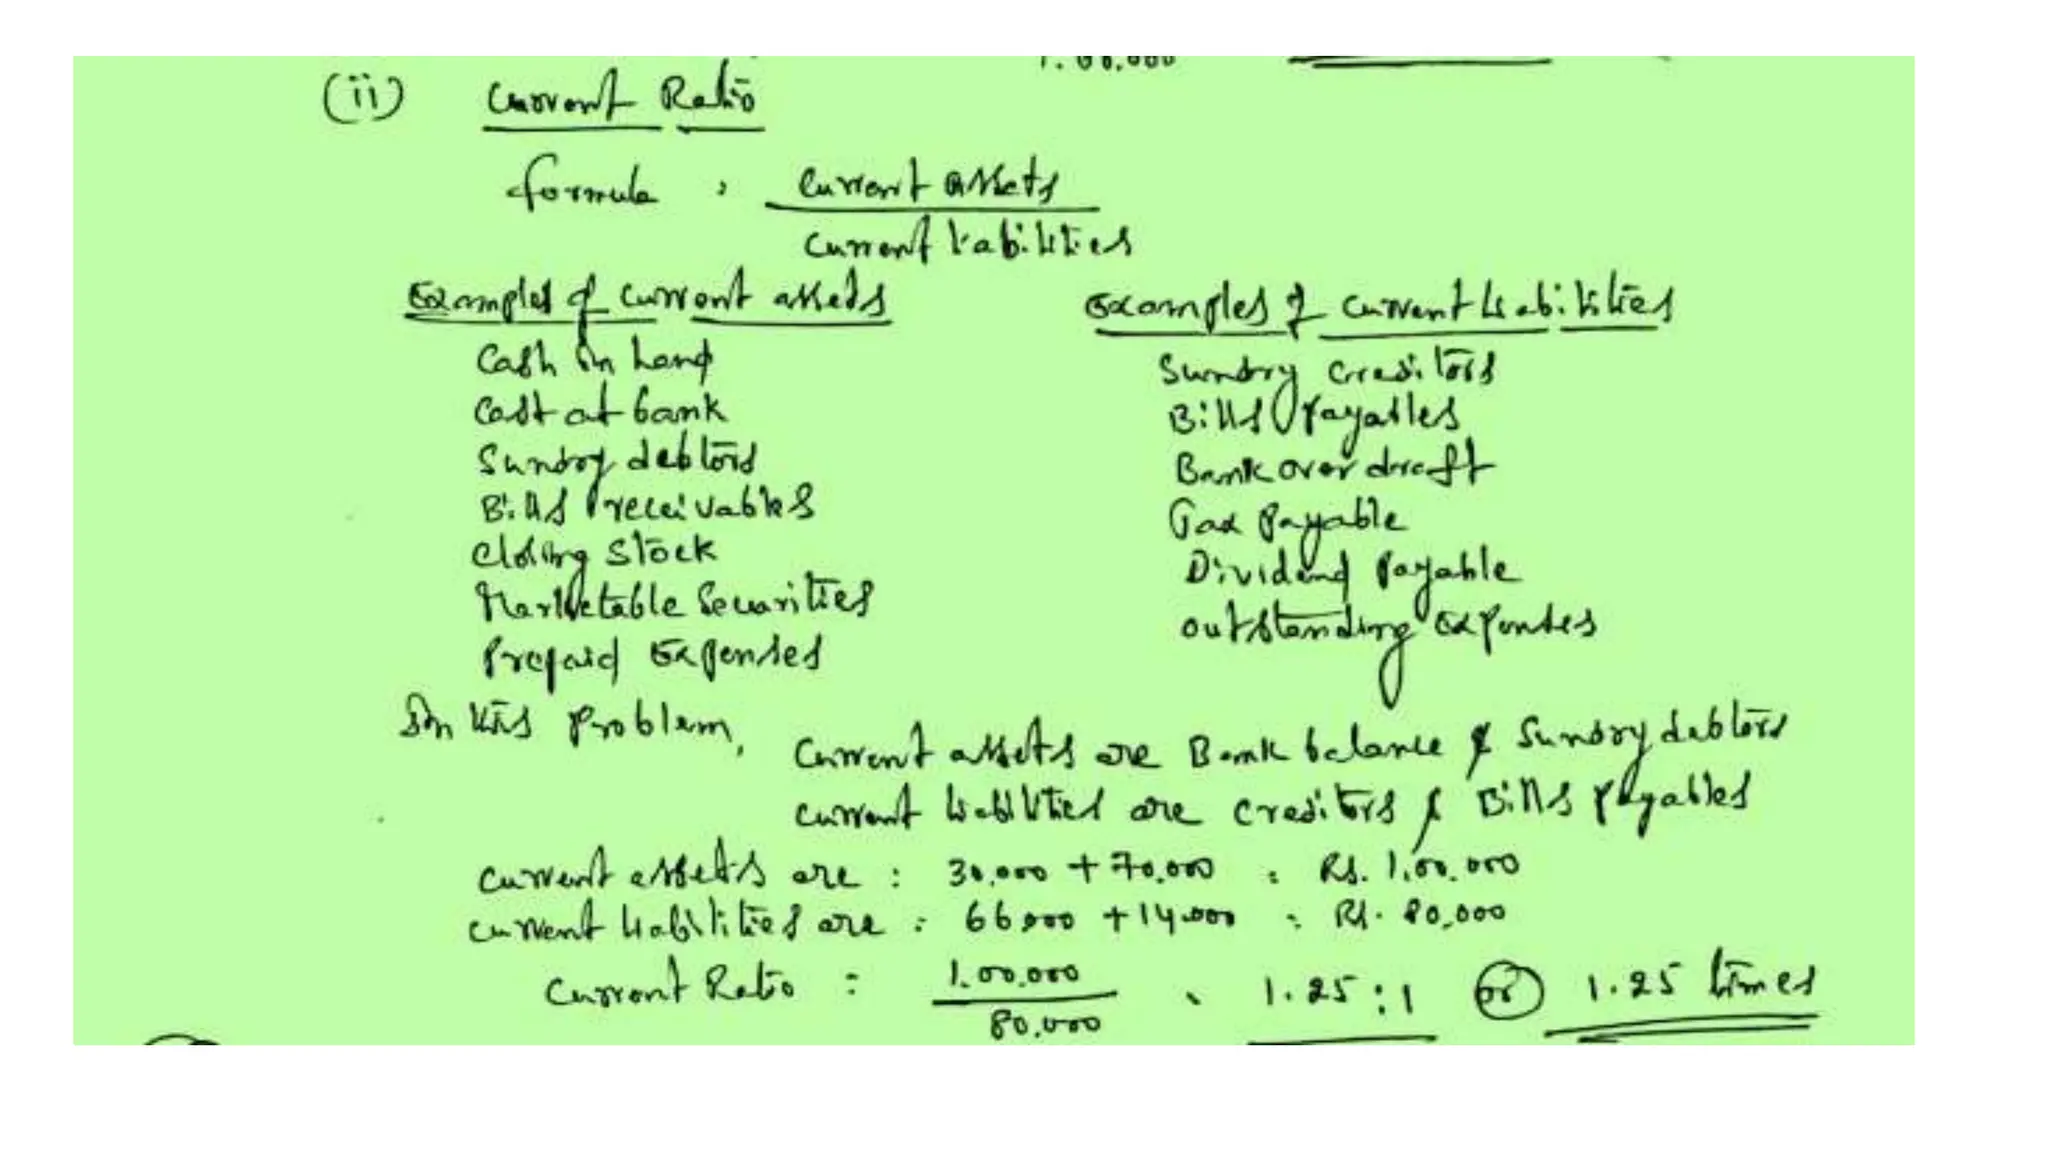 (ii) Current Ratio
formula : Current assets
Current liabilities
Examples of current assets
Cash in hand
Cash at bank
Sundry debtors
Bills receivables
Closing Stock
Marketable Securities
Prepaid Expenses
Examples of current liabilities
Sundry creditors
Bills payables
Bank over draft
Tax payable
Dividend payable
outstanding expenses
In this problem,
Current assets are Bank balance & Sundry debtors
current liabilities are creditors & Bills payables
current assets are : 30,000 + 70,000 = Rs. 1,00,000
current liabilities are : 66000 + 14,000 = Rs. 80,000
Current Ratio = 1,00,000 = 1.25 : 1 or 1.25 times
80,000